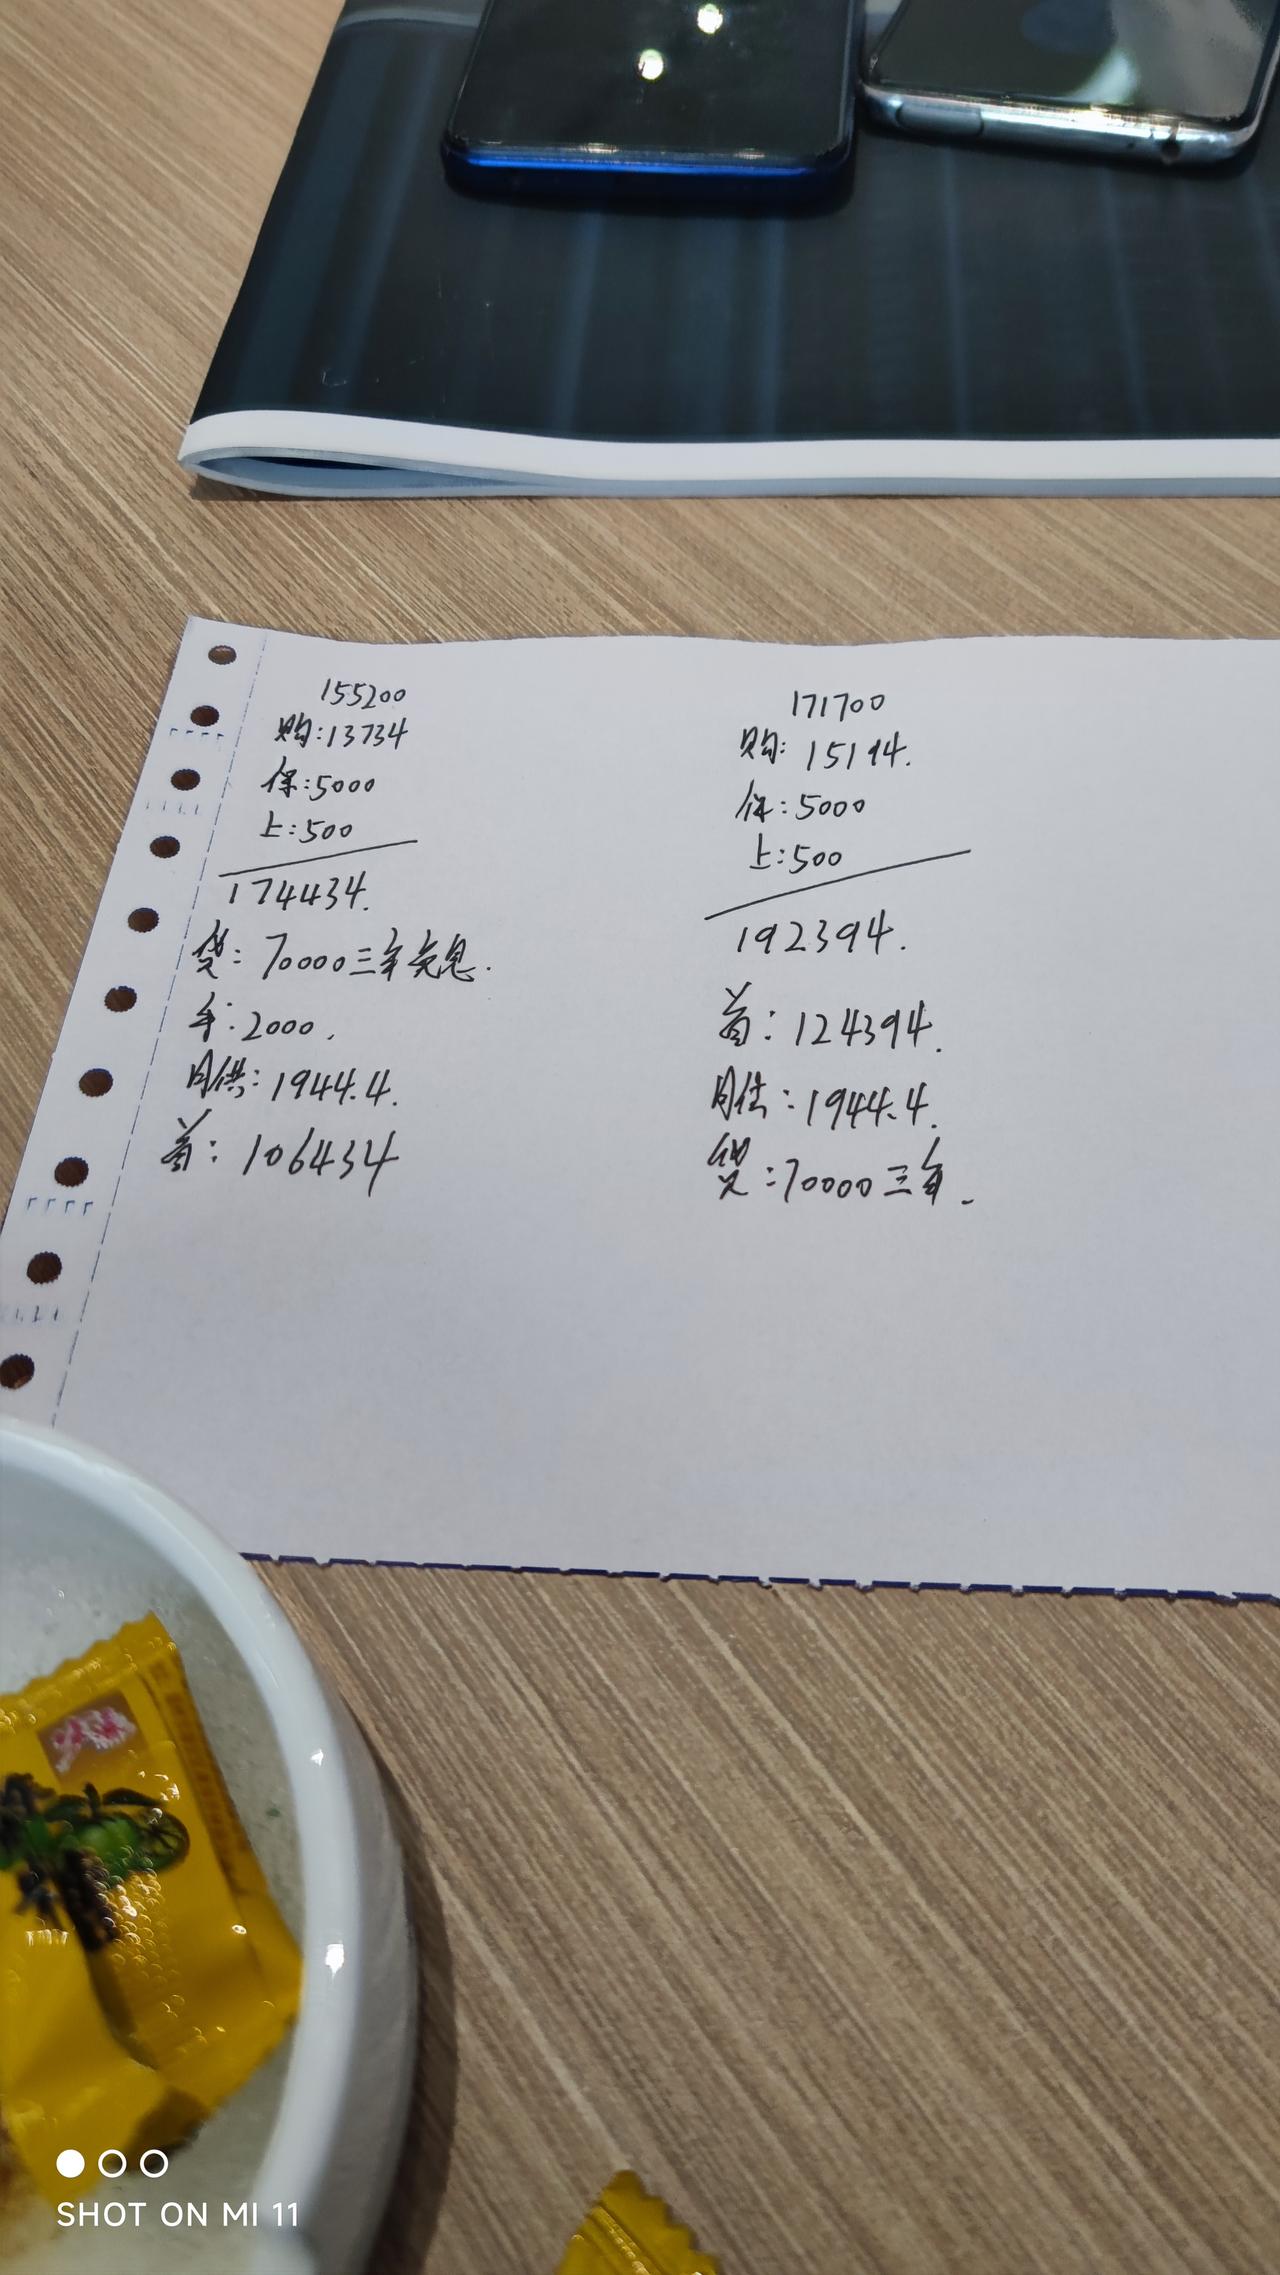 155200
购:13734
保:5000
上:500
174434.
贷:70000三年免息.
手:2000.
月供:1944.4.
首:106434
171700
购:15194.
保:5000
上:500
192394.
首:124394.
月供:1944.4.
贷:70000三年.
SHOT ON MI 11